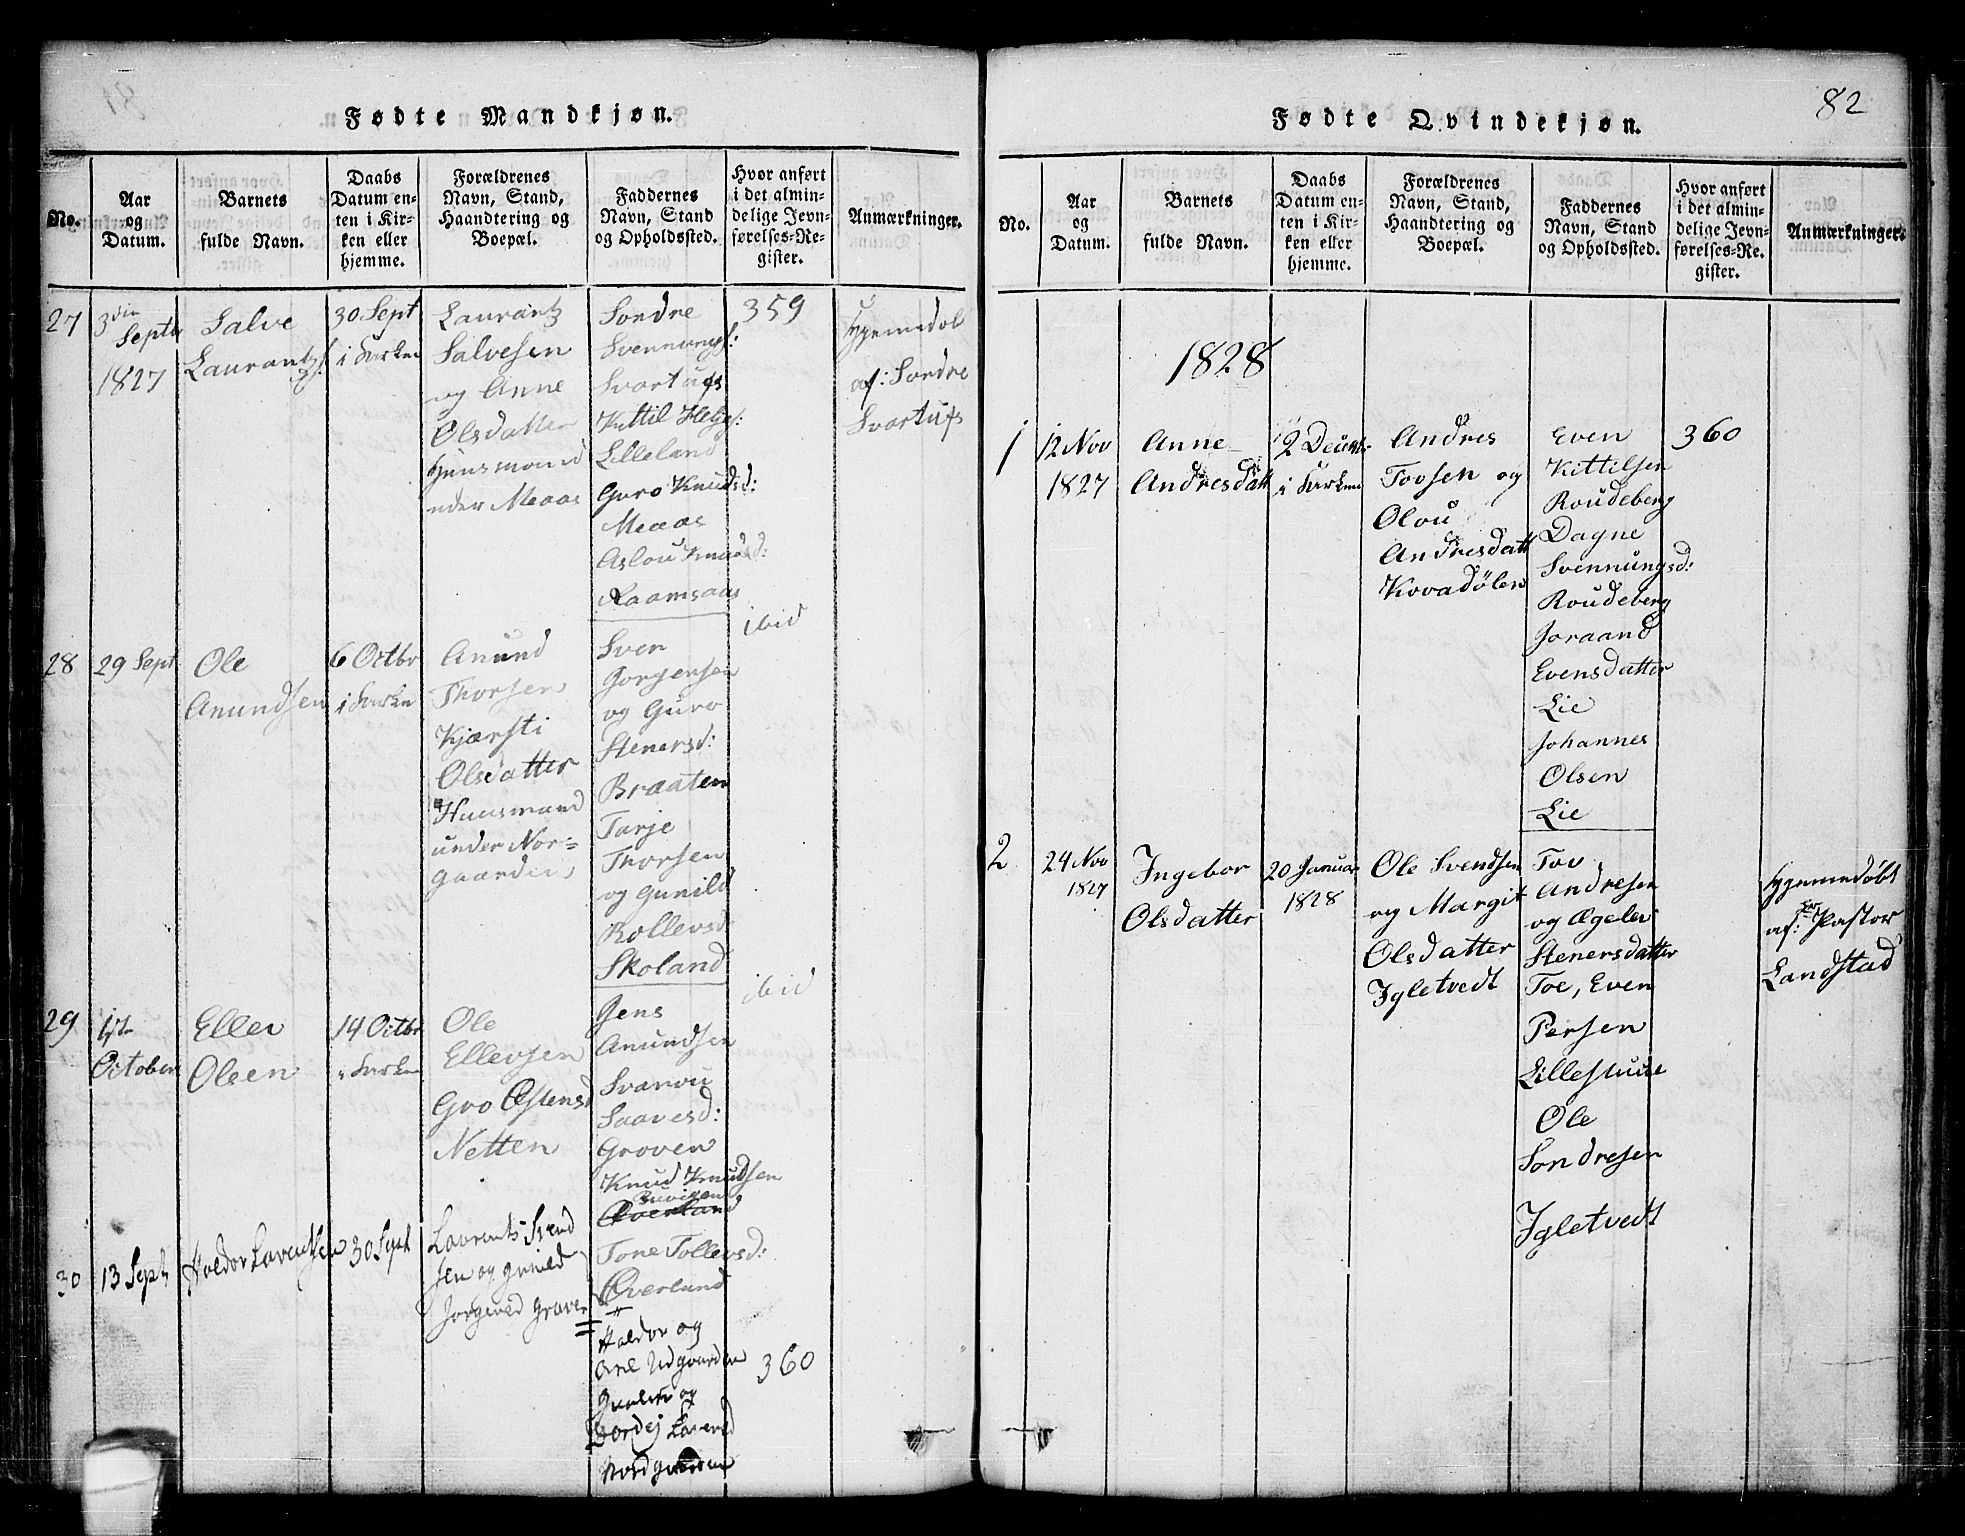 82
Fødte Mandkjøn.
No.
Aar
og
Datum.
Barnets
fulde Navn.
Daabs
Datum en-
ten i Kir-
ken eller
hjemme.
Forældrenes
Navn, Stand,
Haandtering og
Boepæl.
Faddernes
Navn, Stand
og Opholdssted.
Hvor anført
i det almin-
delige Jevn-
førelses-Re-
gister.
Anmærkninger.
27
3die
Septbr
1827
Salve
Laurantzs:
30 Sept
i Kirken
Laurantz
Salvesen
og Anne
Olsdatter
Huusmand
under Maas
Sondre
Svennungs:
Svartufs
Kittil Helges:
Lilleland
Guro Knudsd:
Meaas
Aslou Knudsd:
Raamsaas
359
Hjemmedøb
af: Sondre
Svartufs
28
29 Sept
Ole
Anundsen
6 Octbr
i Kirken
Anund
Thorsen
Kjærsti
Olsdatter
Huusmand
under Nor=
gaarden
Sven
Jorgensen
og Guro
Stenersd:
Braaten
Tarje
Thorsen
og Gunild
Rollevsd
Skoland
ibid
29
1ste
October
Ellev
Olsen
14 Octbr
i Kirken
Ole
Ellevsen
Gro Østensd
Netten
Jens
Anundsen
Svanou
Saavesd:
Groven
Knud Knudsen
Overland
Tone Tollevsd:
Overland
ibid
30
13 Sept
Haldor Laurentsen
30 Sept
Laurants Svend
sen og Gunild
Jorgensd Graver
Haldor og
Nordgaarden
360
Fødte Qvindekjøn.
No.
Aar
og
Datum.
Barnets
fulde Navn.
Daabs
Datum en-
ten i Kir-
ken eller
hjemme.
Forældrenes
Navn, Stand,
Haandtering og
Boepæl.
Faddernes
Navn, Stand
og Opholdssted.
Hvor anført
i det almin-
delige Jevn-
førelses-Re-
gister.
Anmærkninger.
1828
1
12 Nov
1827
Anne
Andresdatt
2 Decmb:
i Kirken
Andres
Tovsen og
Olou
Andresdatt
Kovadølen
Even
Kittilsen
Roudeberg
Dagne
Svennungsd:
Roudeberg
Joraand
Evensdatter
Lie
Johannes
Olsen
Lie
360
2
24 Nov
1827
Ingebor
Olsdatter
20 Januar
1828
Ole Svendsen
og Margit
Olsdatter
Igletvedt
Tov
Andresen
og Ægelev
Stenersdatter
Toe, Even
Persen
Lillestuue
Ole
Sondresen
Igletvedt
Hjemmedøbt
af: Hr Pastor
Landstad